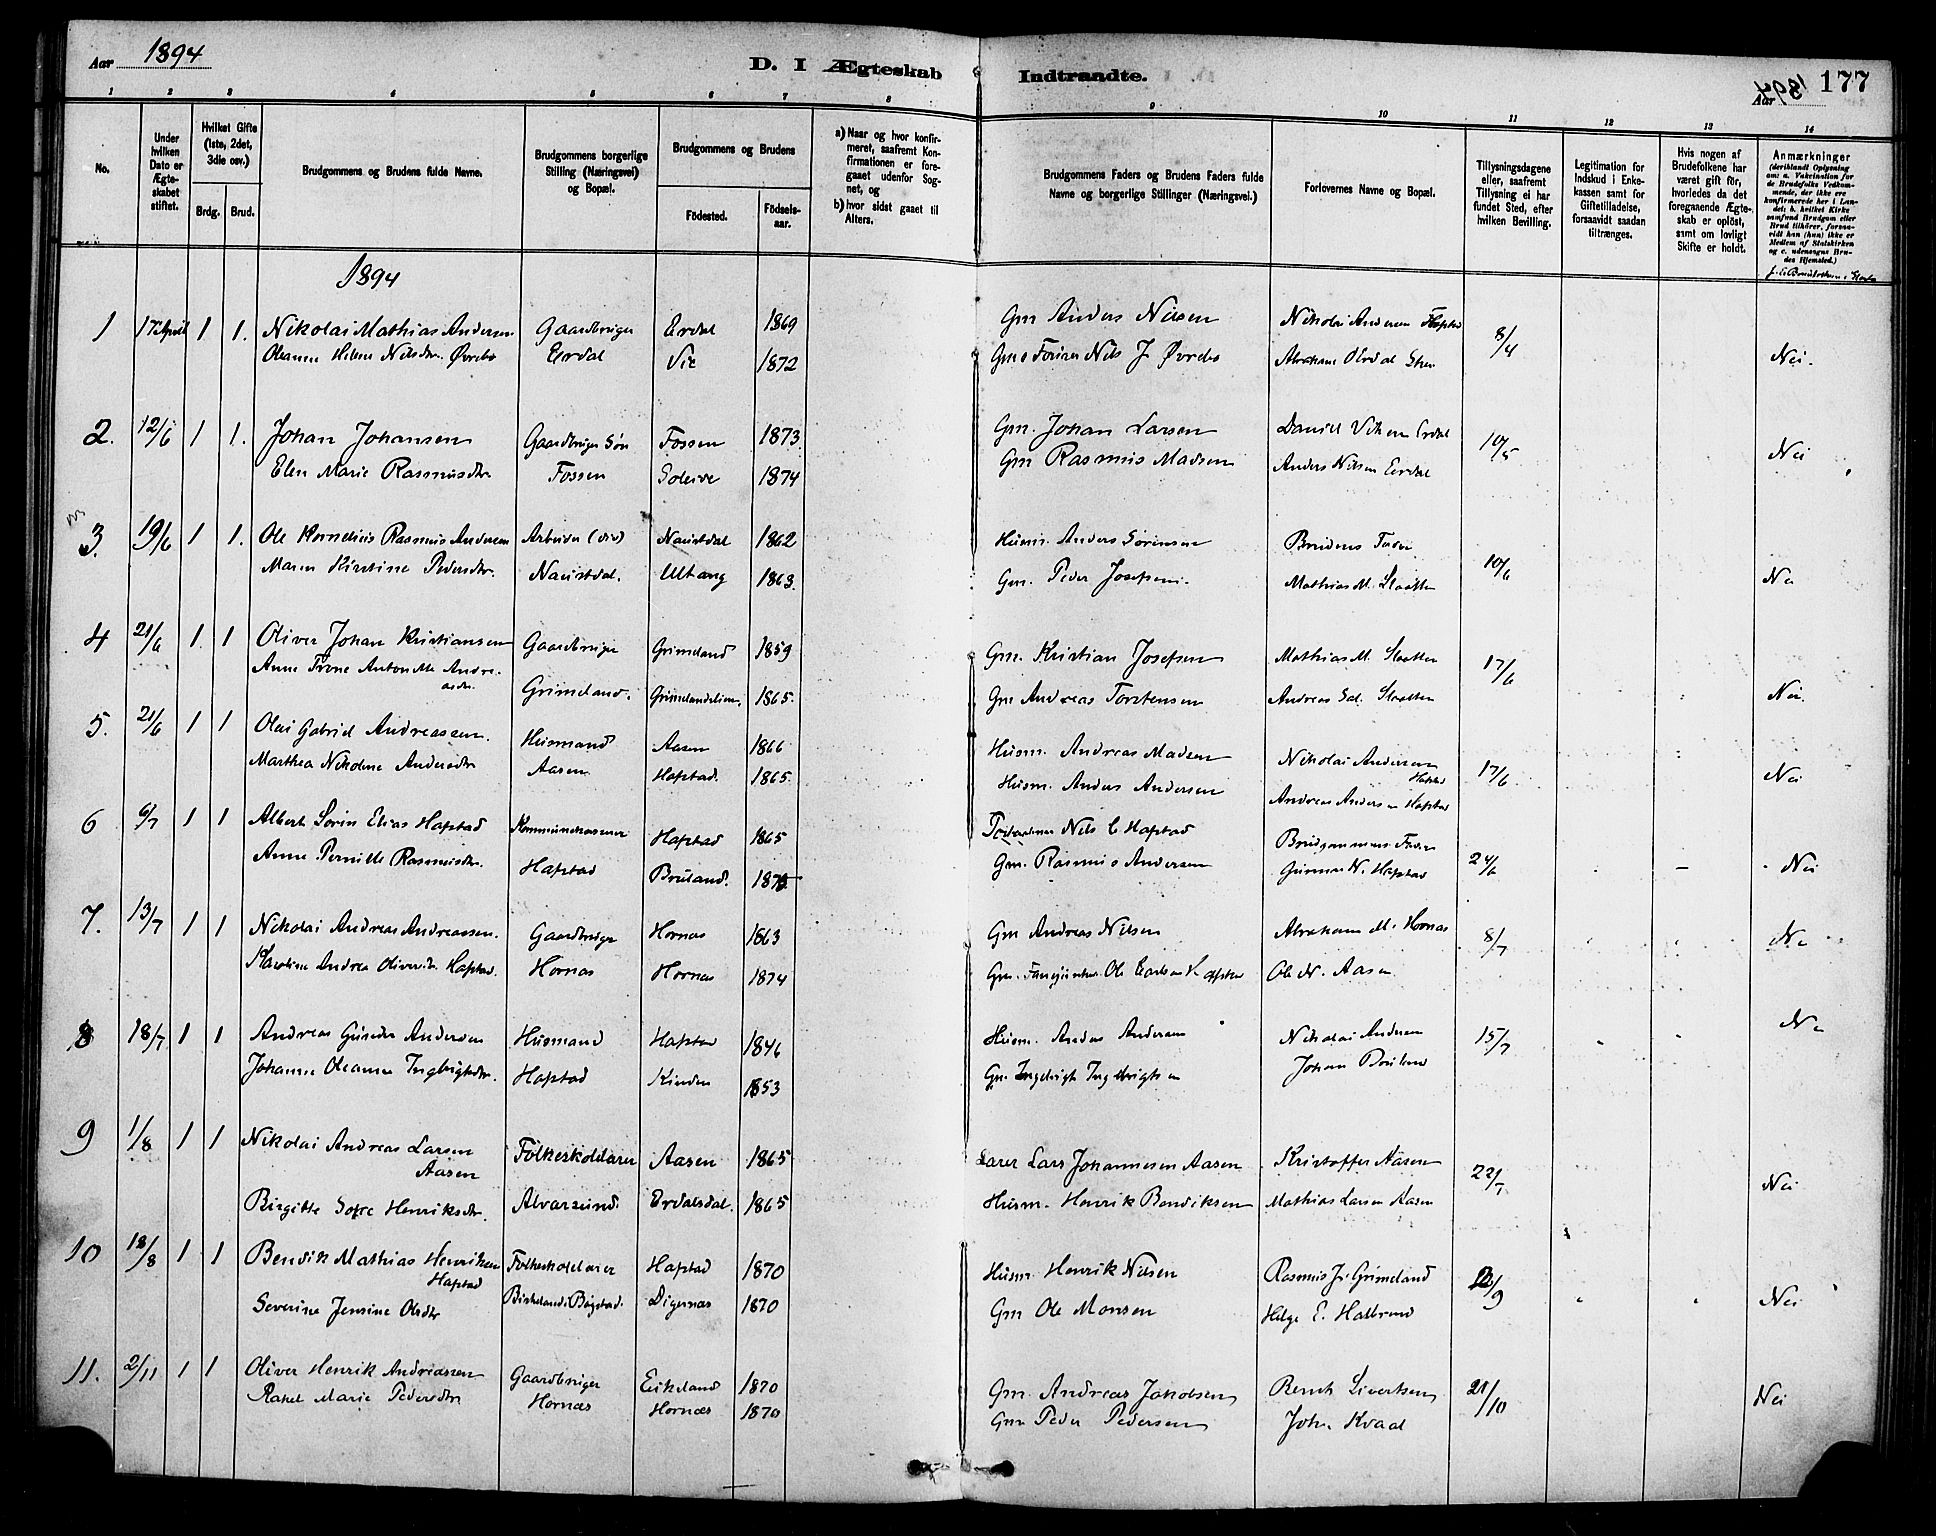 Aar 1894
D. I Ægteskab Indtraadte.
Aar 1894 177
1 2 3 4 5 6 7 8 9 10 11 12 13 14
No.
Under hvilken Dato er Ægteskabet stiftet.
Hvilket Gifte (1ste, 2det, 3die osv.)
Brdg. Brud.
Brudgommens og Brudens fulde Navne.
Brudgommens borgerlige Stilling (Næringsvei) og Bopæl.
Brudgommens og Brudens
Födested. Födselsaar.
a) Naar og hvor konfirmeret, saafremt Konfirmationen er foregaaet udenfor Sognet, og
b) hvor sidst gaaet til Alters.
Brudgommens Faders og Brudens Faders fulde Navne og borgerlige Stillinger (Næringsvei.)
Forlovernes Navne og Bopæl.
Tillysningsdagene eller, saafremt Tillysning ei har fundet Sted, efter hvilken Bevilling.
Legitimation for Indskud i Enkekassen samt for Giftetilladelse, forsaavidt saadan tiltrænges.
Hvis nogen af Brudefolkene har været gift för, hvorledes da det foregaaende Ægteskab er oplöst, samt om lovligt Skifte er holdt.
Anmærkninger (deriblandt Oplysning om: a. Vakcination for de Brudefolks Vedkommende, der ikke ere konfirmerede her i Landet; b. hvilket Kirkesamfund Brudgom eller Brud tilhörer, forsaavidt han (hun) ikke er Medlem af Statskirken og c. udensogns Brudes Hjemsted.)
1894
1 17 April 1 1. Nikolai Mathias Andersen Gaardbruger Erdal 1869 Gm Anders Nilsen Nikolai Andersen Hapstad 8/4 Nei.
Oleanne Helene Nilsdtr. Øvrebø Erdal Vie 1872 Nils J Øvrebø Abraham O Erdal
2. 12/6 1 1. Johan Johansen Gaardbruger Søn Fossen 1873 Gm. Johan Larsen Daniel Erdal 10/5 Nei
Elen Marie Rasmusdtr Fossen Soleive 1874 Gm Rasmus Madsen Anders Nilsen Erdal
3. 19/6 1 1. Ole Kornelius Rasmus Andersen Arbeider Naustdal 1862 Husm. Anders Sørensen Brudens Fader 10/6 Nei
Maren Kirstine Pedersdtr. Naustdal. Ulltang 1863. Gm. Peder Josefsen. Mathias M. Slaatten
4 21/6 1. 1 Oliver Johan Kristiansen Gaardbruger Grimeland 1859 Gm. Kristian Josefsen Mathias M. Slaatten 17/6 Nei.
Anne Trone Anton Ma. Andreasdtr. Grimeland. Grimelandslien. 1865. Gm Andreas Torstensen Andreas Sal. Slaatten
5. 21/6 1 1 Olai Gabriel Andreassen. Husmand Aasen 1866 Husm. Andreas Madsen Nikolai Andersen Hapstad 17/6 Nei
Marthea Nikoline Andersdtr Aasen Hapstad. 1865. Husm. Anders Andersen Andreas Andersen Hapstad
6 6/7 1 1 Albert Sørin Elias Hapstad Kommunekasserer Hapstad 1865 Nils C Hapstad Brudgommens Fader 24/6 - Nei
Anne Pernille Rasmusdtr. Hapstad Bruland. Gm. Rasmus Andersen Gunnar N. Hapstad
7. 13/7 1 1 Nikolai Andreas Andreassen. Gaardbruger Hornæs 1863 Gm Andreas Nilsen Abraham M. Hornæs 8/7 Nei
Karoline Andrea Oliversdtr. Hapstad. Hornæs Hornæs 1874 Ole N. Aasen
8 18/7 1 1 Andreas Gunder Andersen Husmand Hapstad 1846 Husm. Anders Andersen Nikolai Andersen 15/7 Nei
Johanne Oleanna Ingbrigtsdtr. Hapstad Kinden 1853 Gm. Ingebrigt Ingebrigtsen Johan
9 1/8 1 1 Nikolai Andreas Larsen Aasen Folkeskolelærer Aasen 1865 Lærer Lars Johannesen Aasen Kristoffer Aasen 22/7 Nei
Birgitte Sofie Henriksdtr. Alvarsund. Erdalsdal. 1865 Husm. Henrik Bendiksen Mathias Larsen Aasen
10 18/8 1 1 Bendik Mathias Henriksen Hapstad Folkeskolelærer Hapstad 1870 Husm. Henrik Nilsen Rasmus J. Grimeland Nei
Severine Jensine Olsdtr Birkeland i Bøgstad. Digernæs 1870 Gm Ole Monsen Helge E. Halbrend
11. 2/11 1 1 Oliver Henrik Andreassen Gaardbruger Eikeland 1870 Gm. Andreas Jakobsen Bernt Sivertsen 21/10 Nei
Rakel Marie Pedersdtr. Hornæs Hornæs 1870 Gm Peder Pedersen John Kvaal